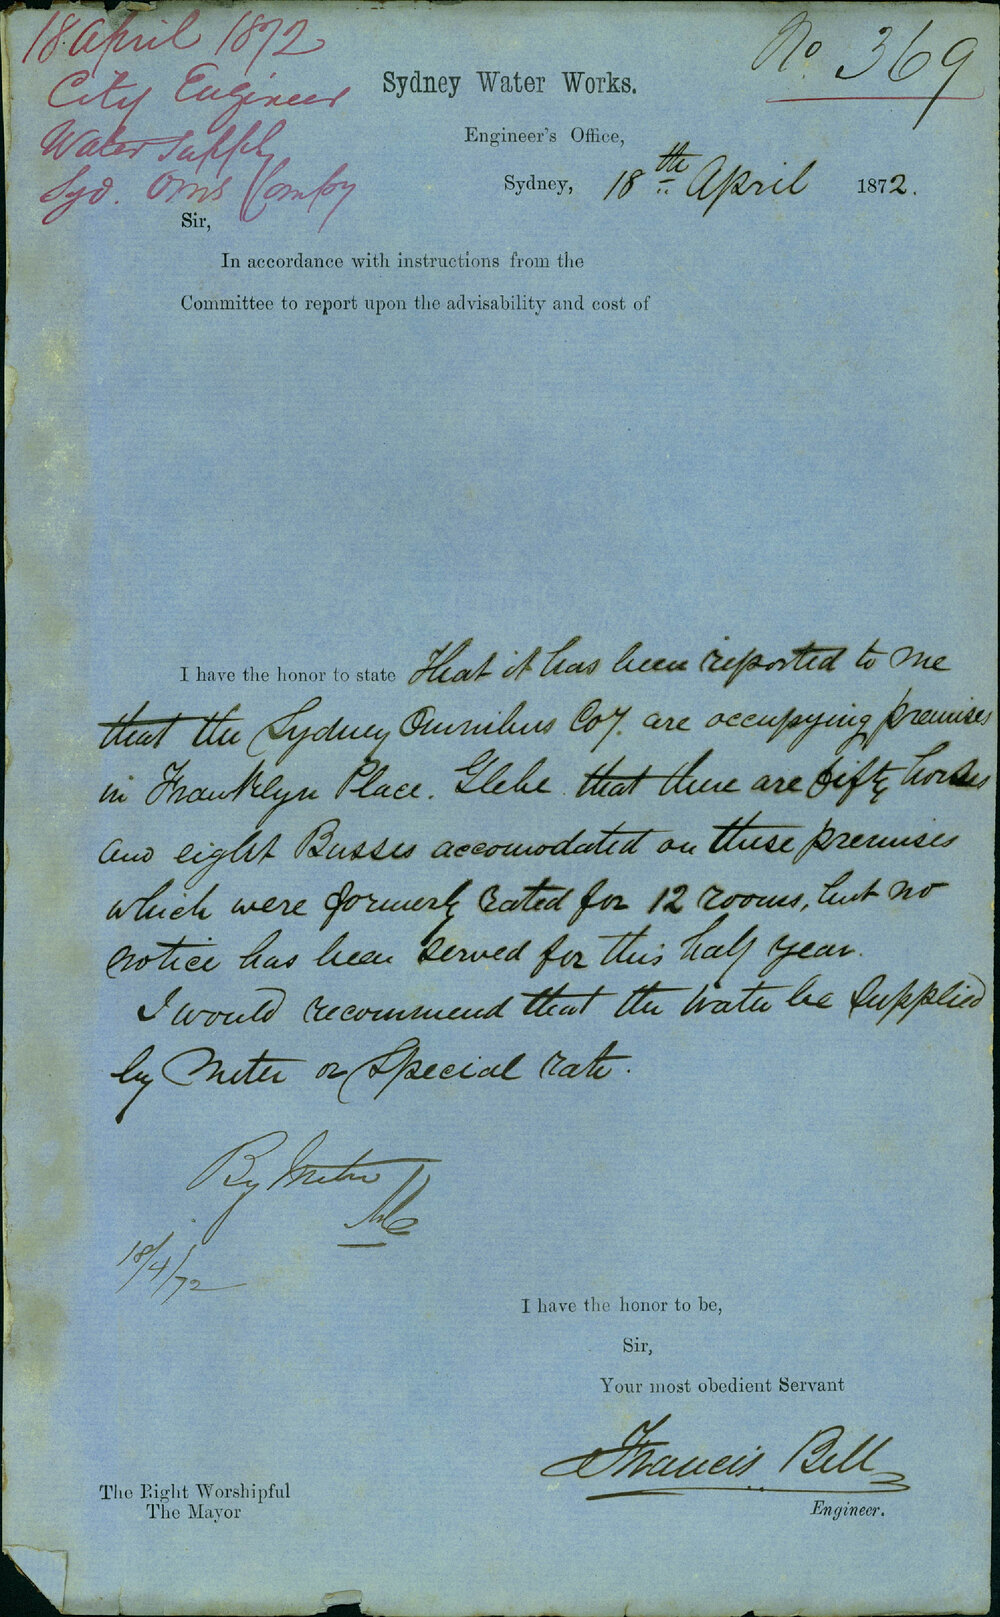 18 April 1872
City Engineer
Water Supply
Syd. Oms Compy
No. 369
Sydney Water Works.
Engineer's Office,
Sydney, 18th April 1872.
Sir,
In accordance with instructions from the
Committee to report upon the advisability and cost of
I have the honor to state that it has been reported to me
that the Sydney Omnibus Coy. are occupying premises
in Franklyn Place. Glebe that there are fifty horses
and eight Busses accomodated on these premises
which were formerly rated for 12 rooms, but no
notice has been served for this half year.
I would recommend that the water be supplied
by meter or Special rate.
By Meter
18/4/72
I have the honor to be,
Sir,
Your most obedient Servant
Francis Bell
Engineer.
The Right Worshipful
The Mayor